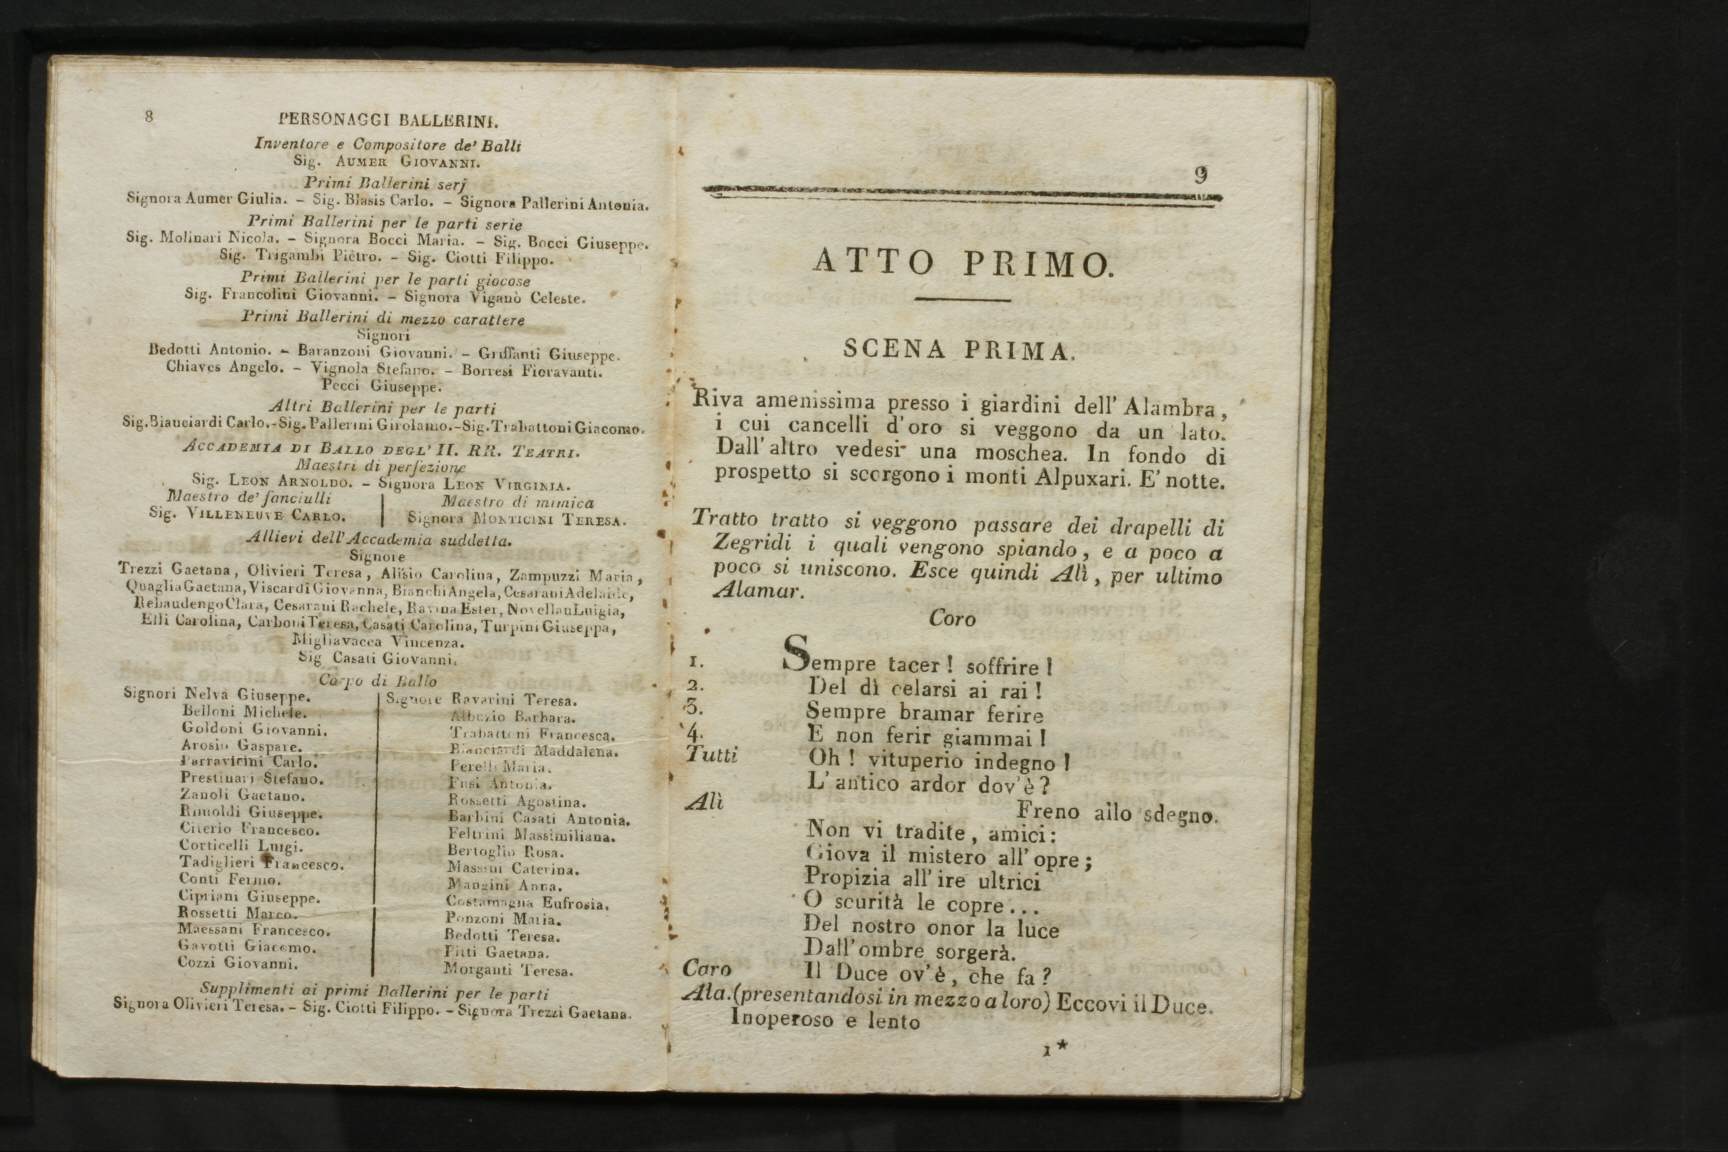 8
PERSONAGGI BALLERINI.
Inventore e Compositore de' Balli
Sig. AUMER GIOVANNI.
Primi Ballerini serj
Signora Aumer Giulia. – Sig. Blasis Carlo. – Signora Pallerini Antonia.
Primi Ballerini per le parti serie
Sig. Molinari Nicola. – Signora Bocci Maria. – Sig. Bocci Giuseppe.
Sig. Trigambi Piétro. – Sig. Ciotti Filippo.
Primi Ballerini per le parti giocose
Sig. Francolini Giovanni. – Signora Viganò Celeste.
Primi Ballerini di mezzo carattere
Signori
Bedotti Antonio. – Baranzoni Giovanni. – Griffanti Giuseppe.
Chiaves Angelo. – Vignola Stefano. – Borresi Fioravanti.
Pecci Giuseppe.
Altri Ballerini per le parti
Sig. Bianciardi Carlo.-Sig. Pallerini Girolamo.-Sig. Trabattoni Giacomo.
ACCADEMIA DI BALLO DEGL' II. RR. TEATRI.
Maestri di perfezione
Sig. LEON ARNOLDO. – Signora LEON VIRGINIA.
Maestro de' fanciulli
Sig. VILLENEUVE CARLO.
Maestro di mimica
Signora MONTICINI TERESA.
Allievi dell'Accademia suddetta.
Signore
Trezzi Gaetana, Olivieri Teresa, Alisio Carolina, Zampuzzi Maria,
Quaglia Gaetana, Viscardi Giovanna, Bianchi Angela, Cesarani Adelaide,
Rebaudengo Clara, Cesarani Rachele, Ravina Ester, Novellau Luigia,
Elli Carolina, Carboni Teresa, Casati Carolina, Turpini Giuseppa,
Migliavacca Vincenza.
Sig Casati Giovanni.
Corpo di Ballo
Signori Nelva Giuseppe.
Belloni Michele.
Goldoni Giovanni.
Arosio Gaspare.
Parravicini Carlo.
Prestinari Stefano.
Zanoli Gaetano.
Rimoldi Giuseppe.
Citerio Francesco.
Corticelli Luigi.
Tadiglieri Francesco.
Conti Fermo.
Cipriani Giuseppe.
Rossetti Marco.
Maessani Francesco.
Gavotti Giacomo.
Cozzi Giovanni.
Signore Ravarini Teresa.
Albuzio Barbara.
Trabattoni Francesca.
Bianciardi Maddalena.
Perelli Maria.
Fusi Antonia.
Rossetti Agostina.
Barbini Casati Antonia.
Feltrini Massimiliana.
Bertoglio Rosa.
Massini Caterina.
Mangini Anna.
Costamagna Eufrosia.
Ponzoni Maria.
Bedotti Teresa.
Pitti Gaetana.
Morganti Teresa.
Supplimenti ai primi Ballerini per le parti
Signora Olivieri Teresa. – Sig. Ciotti Filippo. – Signora Trezzi Gaetana.
9
ATTO PRIMO.
SCENA PRIMA.
Riva amenissima presso i giardini dell' Alambra,
i cui cancelli d'oro si veggono da un lato.
Dall' altro vedesi una moschea. In fondo di
prospetto si scorgono i monti Alpuxari. E' notte.
Tratto tratto si veggono passare dei drapelli di
Zegridi i quali vengono spiando, e a poco a
poco si uniscono. Esce quindi Alì, per ultimo
Alamar.
Coro
1. Sempre tacer! soffrire!
2. Del dì celarsi ai rai!
3. Sempre bramar ferire
4. E non ferir giammai!
Tutti Oh! vituperio indegno!
L' antico ardor dov'è?
Alì Freno allo sdegno.
Non vi tradite, amici:
Giova il mistero all' opre;
Propizia all' ire ultrici
O scurità le copre...
Del nostro onor la luce
Dall' ombre sorgerà.
Coro Il Duce ov'è, che fa?
Ala. (presentandosi in mezzo a loro) Eccovi il Duce.
Inoperoso e lento
1*